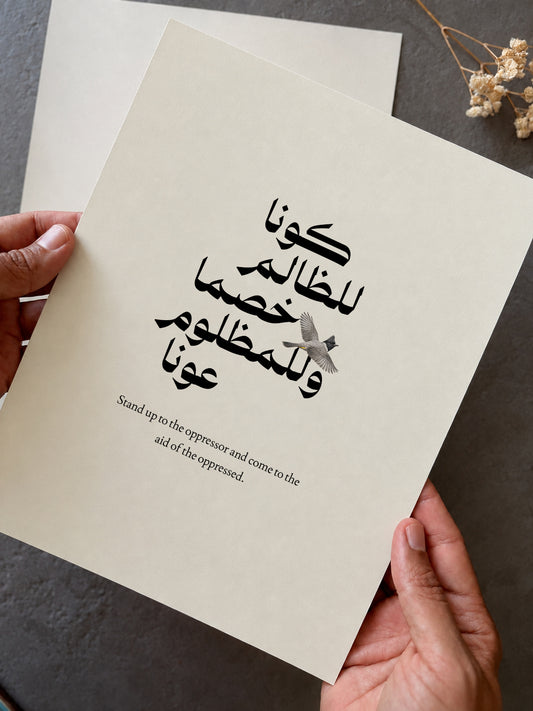 كونا
للظالم
خصما
وللمظلوم
عونا
Stand up to the oppressor and come to the
aid of the oppressed.